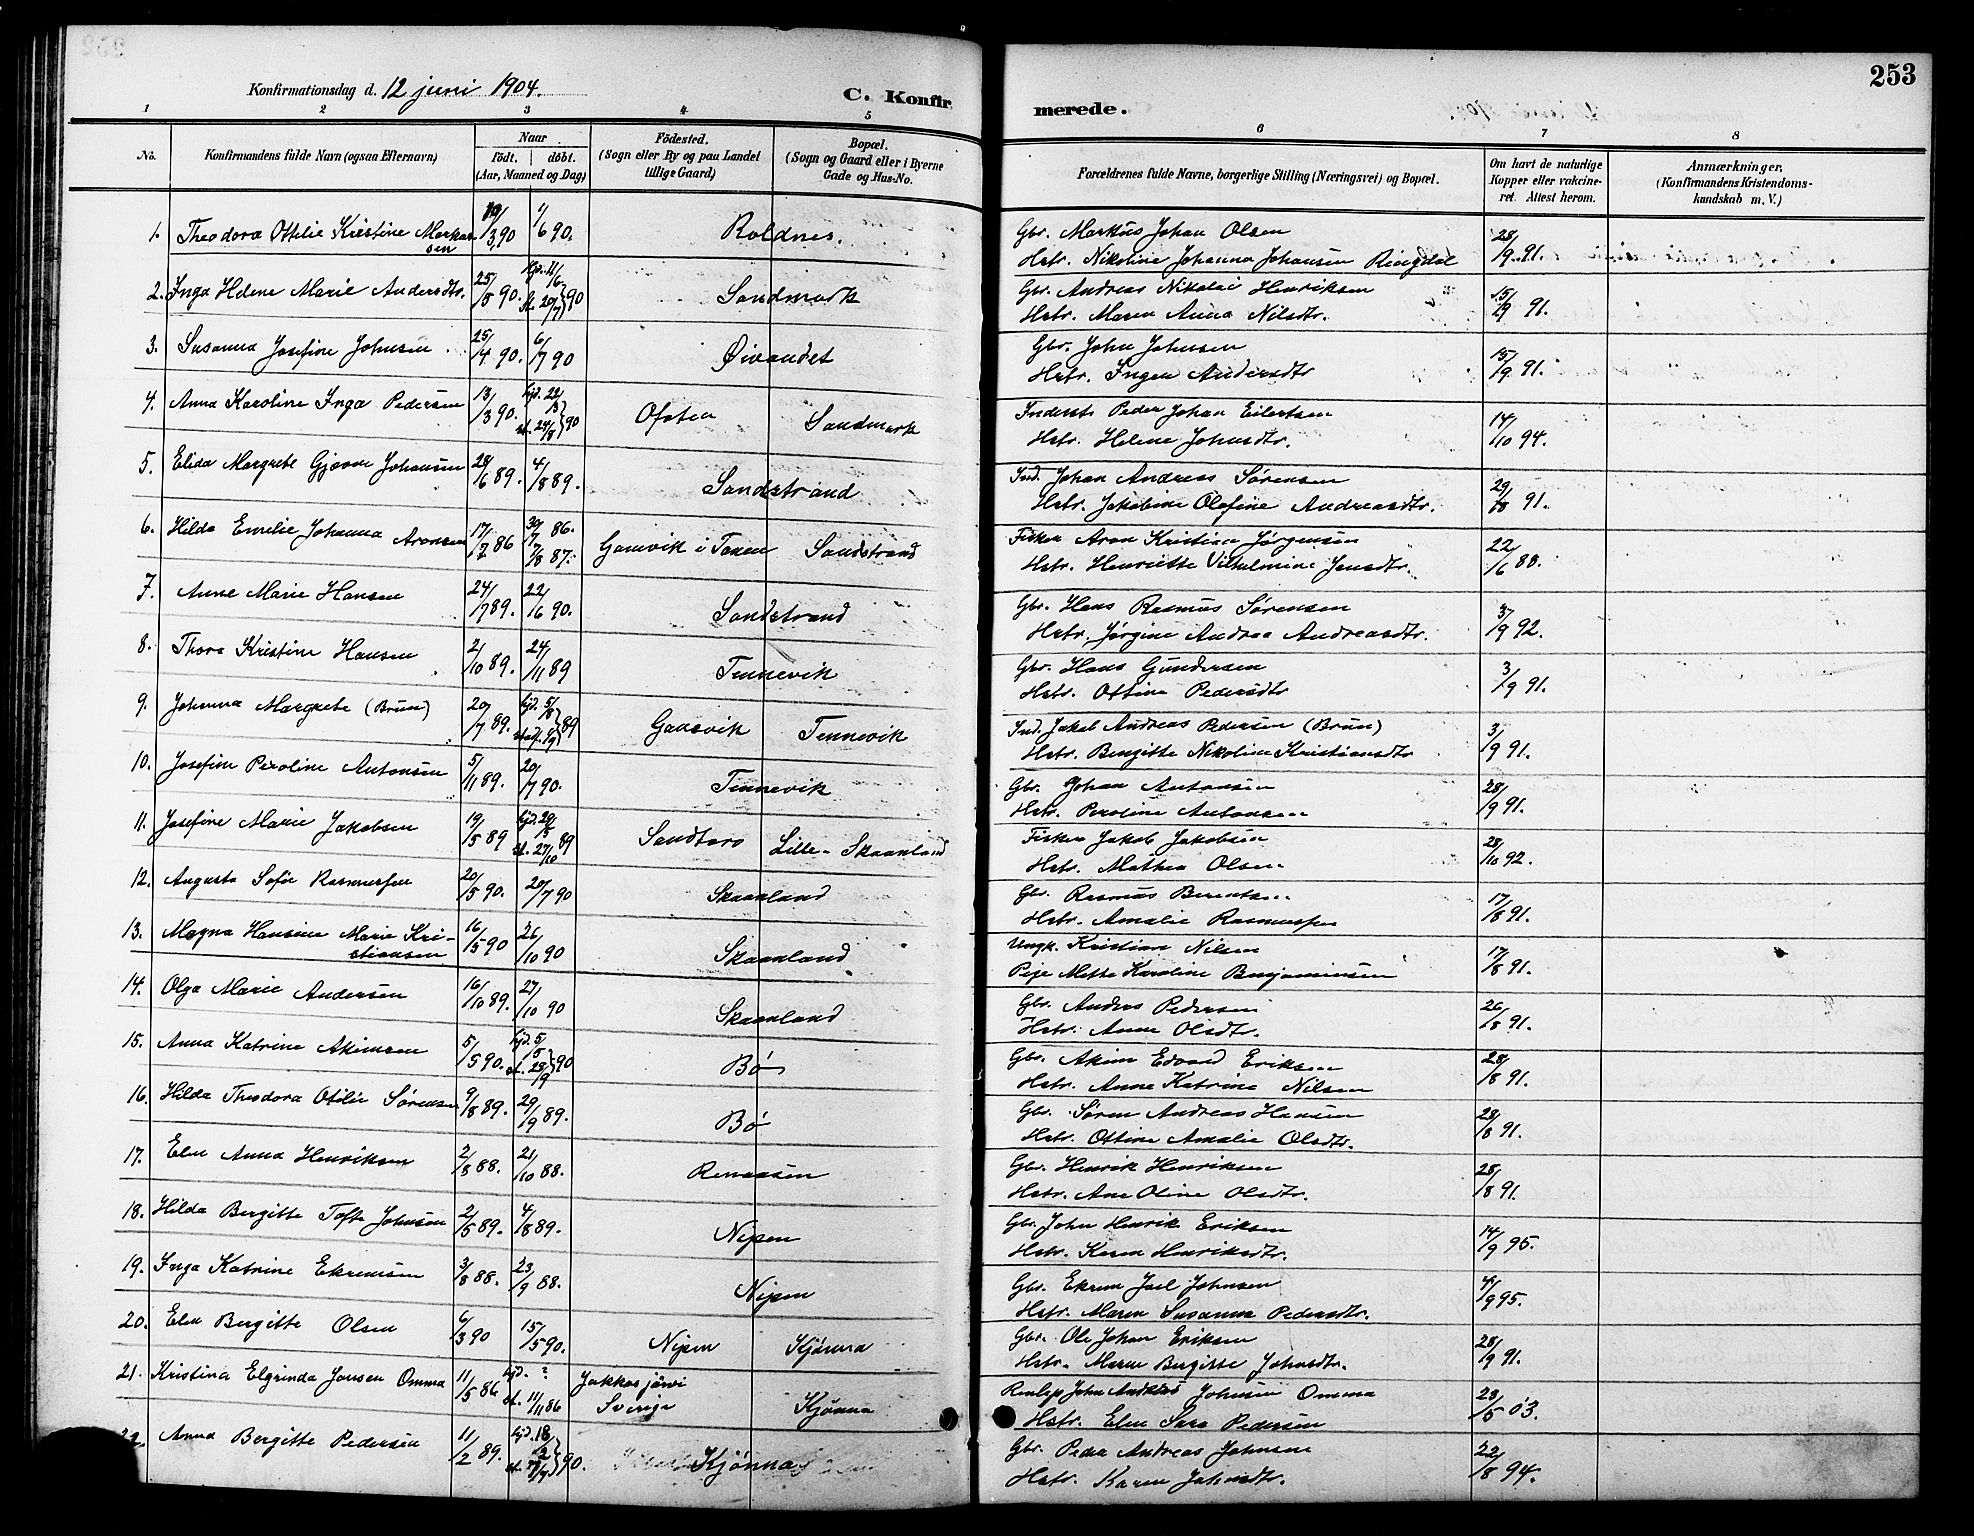 253
Konfirmationsdag d. 12 juni 1904.
C. Konfir
merede.
1 2 3 4 5 6 7 8
No.
Konfirmandens fulde Navn (ogsaa Efternavn)
Naar
födt. döbt.
(Aar, Maaned og Dag)
Födested.
(Sogn eller By og paa Landet
tillige Gaard)
Bopæl.
(Sogn og Gaard eller i Byerne
Gade og Hus-No.
Forældrenes fulde Navne, borgerlige Stilling (Næringsvei) og Bopæl.
Om havt de naturlige
Kopper eller vakcine-
ret. Attest herom.
Anmærkninger,
(Konfirmandens Kristendoms-
kundskab m. V.)
1. Theodora Ottilie Kristine Markus-
sen 19/3 90 1/6 90. Roldnes.
Gbr. Markus Johan Olsen
Hstr. Nikoline Johanna Johansen Ringdal 28/9 91.
2. Inga Helene Marie Andersdtr. 25/5 90. hjd. 11/6 st. 20/7 90 Sandmark
Gbr. Andreas Nikolai Henriksen
Hstr. Maren Anna Nilsdtr. 15/9 91.
3. Susanna Josefine Johnsen 25/4 90. 6/7 90 Øivandet
Gbr. John Johnsen
Hstr. Inger Andersdtr 15/9 91.
4. Anna Karoline Inga Pedersen 13/3 90. hjd. 22/3 st. 24/8 90 Ofoten Sandmark
Inderst Peder Johan Eilertsen
Hstr. Helene Johnsdtr. 14/10 94.
5. Elida Margrete Gjøver Johansen 28/6 89. 4/8 89. Sandstrand
Ind. Johan Andreas Sørensen
Hstr. Jakobine Olefine Andreasdtr. 29/8 91.
6. Hilda Emelie Johanna Aronsen 17/7 86 30/7 86. 7/8 87. Gamvik i Tanen Sandstrand
Fisker Aron Kristian Jørgensen
Hstr. Henriette Vilhelmine Jensdtr. 22/6 88.
7. Anne Marie Hansen 24/7 89. 22/6 90. Sandstrand
Gbr. Hans Rasmus Sørensen
Hstr. Jørgine Andrea Andreasdtr. 3/9 92.
8. Thora Kristine Hansen 2/10 89. 24/11 89 Tennevik
Gbr. Hans Gundersen
Hstr. Ottine Pedersdtr 3/9 91.
9. Johanna Margrete (Brun) 20/7 89. hjd. 5/8 stadf. 1/9 89 Gausvik Tennevik
Ind. Jakob Andreas Pedersen (Brun)
Hstr. Bergitte Nikoline Kristiansdtr 3/9 91.
10. Josefine Peroline Antonsen 5/11 89. 20/7 90. Tennevik
Gbr. Johan Antonsen
Hstr. Peroline Antonsen 28/9 91.
11. Josefine Marie Jakobsen 19/5 89 hjd. 29/5 st. 27/10 89 Sandtorv Lille-Skaanland
Fisker Jakob Jakobsen
Hstr. Mathea Olsen 28/10 92.
12. Augusta Sofie Rasmussen 20/5 90. 20/7 90 Skaanland
Gbr. Rasmus Berentsen
Hstr. Amalie Rasmussen 17/8 91.
13. Magna Hansine Marie Kri-
stiansen 16/5 90 26/10 90 Skaanland
Ungk. Kristian Nilsen
Pige Mette Karoline Benjaminsen 17/8 91.
14. Olga Marie Andersen 16/10 89. 27/10 90 Skaanland
Gbr. Anders Pedersen
Hstr. Anne Olsdtr. 26/8 91.
15. Anna Katrine Akimsen 5/5 90. hjd. 5/5 st. 28/9 90 Bø
Gbr. Akim Edvard Eriksen
Hstr. Anne Katrine Nilsen 28/8 91.
16. Hilda Theodora Otilie Sørensen 9/8 89. 29/9 89. Bø
Gbr. Søren Andreas Hansen
Hstr. Ottine Amalie Olsdtr. 28/8 91.
17. Elen Anna Henriksen 2/8 88. 21/10 88. Renaasen
Gbr. Henrik Henriksen
Hstr. Ane Oline Olsdtr. 28/8 91.
18. Hilda Bergitte Tofte Johnsen 2/5 89. 4/8 89. Nipen
Gbr. John Henrik Eriksen
Hstr. Karen Henriksdtr. 14/9 95.
19. Inga Katrine Ekremsen 3/8 88. 23/9 88. Nipen
Gbr. Ekrem Joel Johnsen
Hstr. Maren Susanna Pedersdtr. 4/9 95.
20. Elen Bergitte Olsen 6/3 90 15/5 90. Nipen Kjønna
Gbr. Ole Johan Eriksen
Hstr. Maren Bergitte Johnsdtr. 28/9 91.
21. Kristina Elgrinda Jonsen Omma 11/5 86 hjd. ? st. 11/11 86 Jukkasjärvi
Sverige Kjønna
Renlap John Andreas Johnsen Omma
Hstr. Elen Sara Pedersen 28/5 03.
22. Anna Bergitte Pedersen 11/2 89. hjd. 18/2 st. 7/7 90. Kjønna
Gbr. Peder Andreas Johnsen
Hstr. Karen Johnsdtr. 22/8 94.